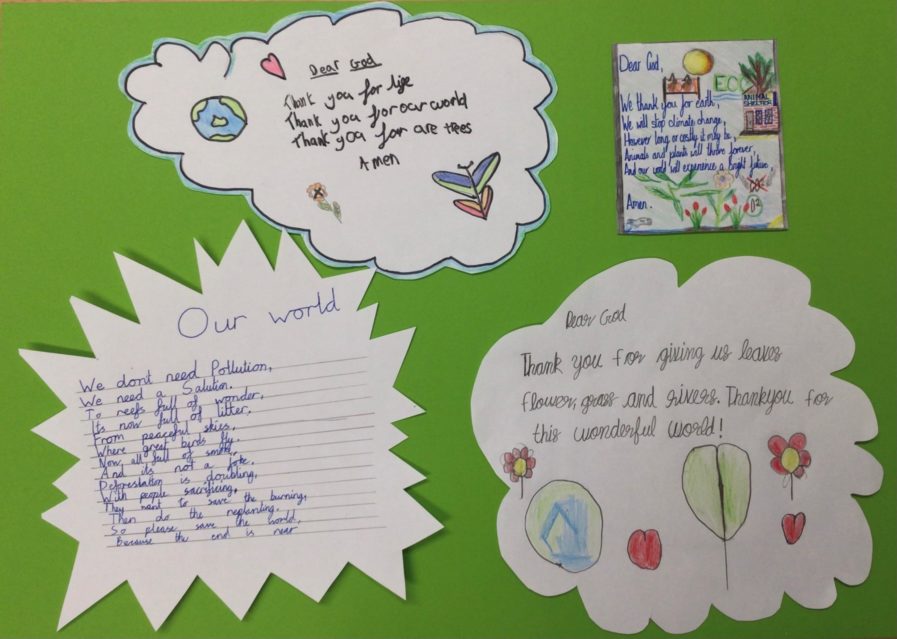 Dear God
Thank you for life
Thank you for our world
Thank you for are trees
Amen
Dear God,
ECO
ANIMAL
SHELTER
We thank you for earth,
We will stop climate change,
However long or costly it may be,
Animals and plants will thrive forever,
And our world will experience a bright future,
Amen.
O2
Our world
We dont need Pollution,
We need a Salution.
To reefs full of wonder,
Its now full of litter,
From peaceful skies,
Where great birds fly.
Now all full of smoke,
And its not a joke,
Deforestation is doubling,
With people sacrificing,
They want to save the burning,
Then do the replanting.
So please save the world,
Because the end is near
Dear God
Thank you for giving us leaves
flower, grass and rivers. Thankyou for
this wonderful world!